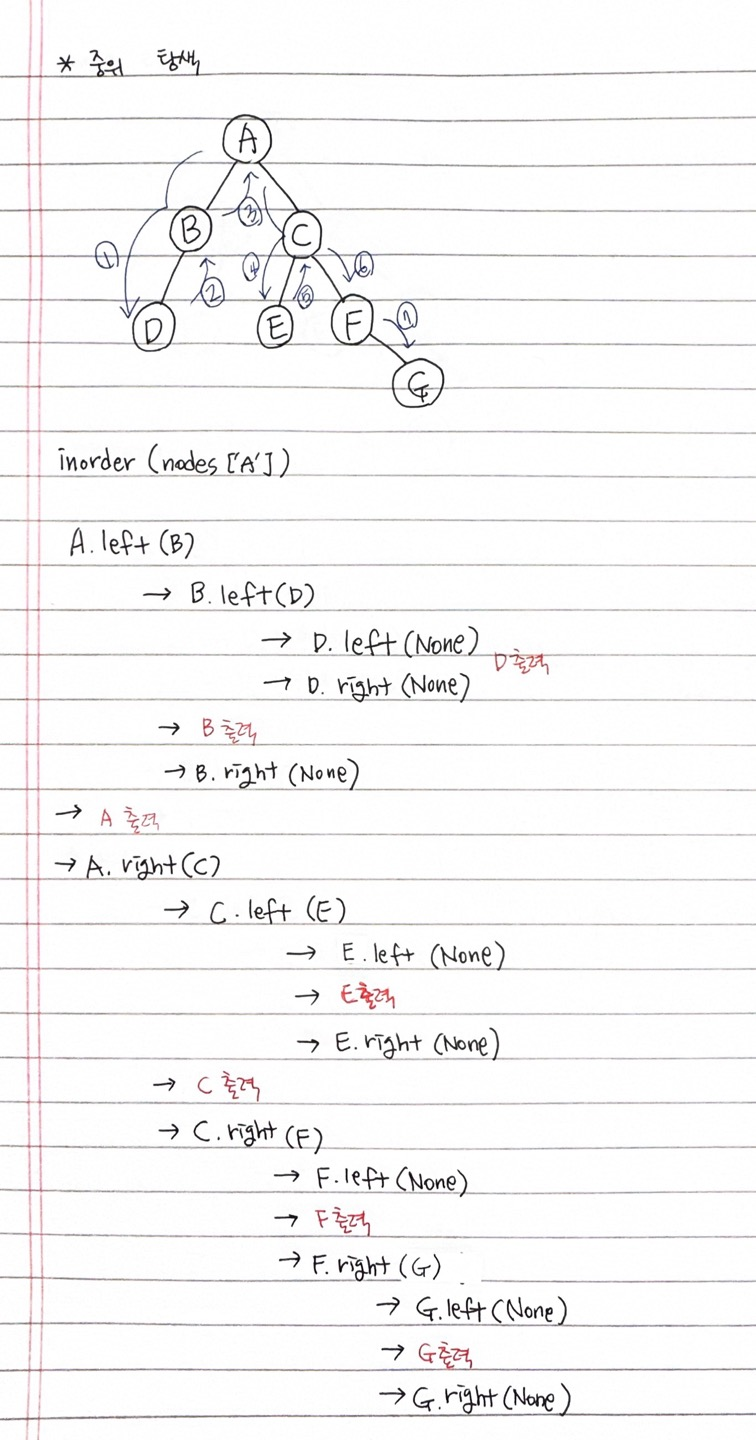 * 중위 탐색
A
B ③ C
① ② ④ ⑤ ⑥
D E F ⑦
G
inorder (nodes ['A'])
A.left (B)
→ B.left(D)
→ D. left (None) D 출력
→ D. right (None)
→ B 출력
→ B. right (None)
→ A 출력
→ A. right (C)
→ C. left (E)
→ E. left (None)
→ E 출력
→ E. right (None)
→ C 출력
→ C. right (F)
→ F. left (None)
→ F 출력
→ F. right (G)
→ G. left (None)
→ G 출력
→ G. right (None)